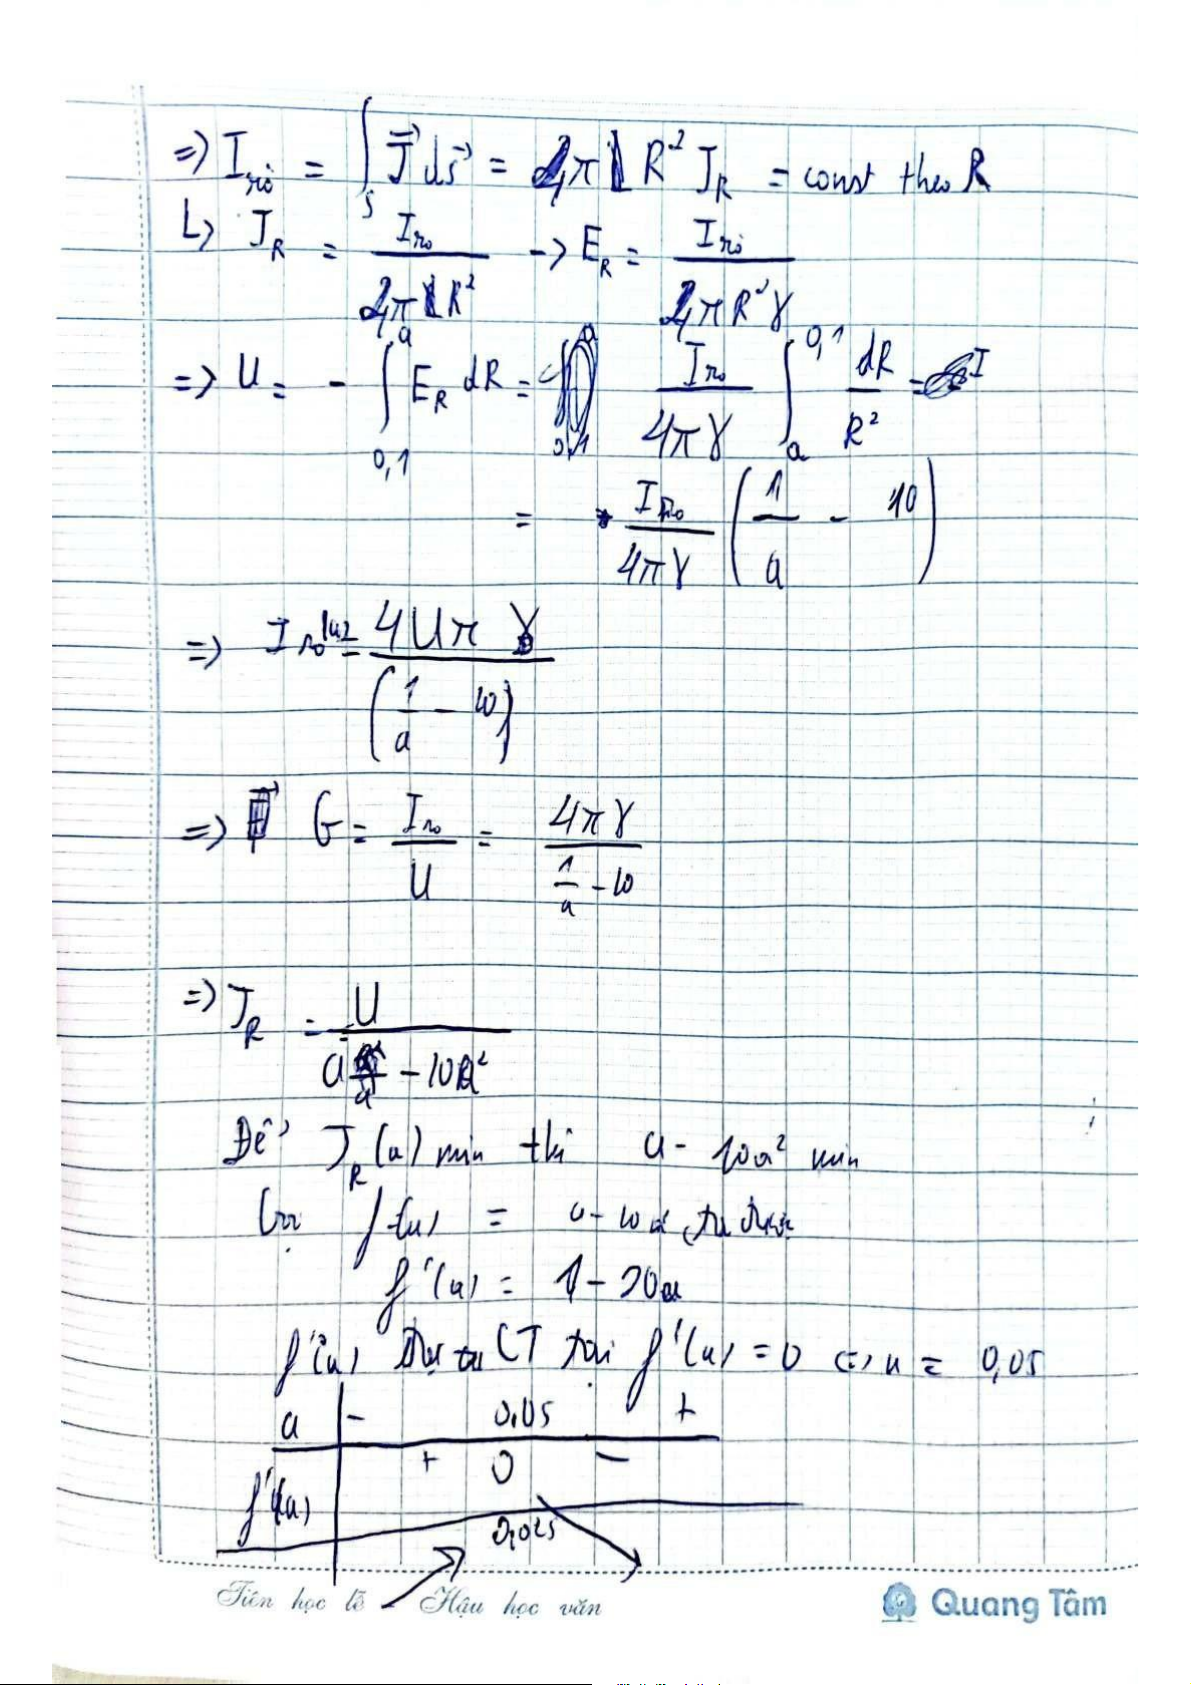 => I_rò = ∫_S J⃗ ds⃗ = 4π R² J_R = const theo R
↳ J_R = I_rò / 4π R² -> E_R = I_rò / 4π R² γ
=> U = - ∫_{0,1}^{a} E_R dR = I_rò / 4πγ ∫_{a}^{0,1} dR / R² =
= I_rò / 4πγ (1/a - 10)
=> I_rò(a) = 4Uπ γ / (1/a - 10)
=> G = I_rò / U = 4πγ / (1/a - 10)
=> J_R = U / (a - 10a²)
Để J_R(a) min thì a - 10a² min
f(a) = a - 10a²
f'(a) = 1 - 20a
f'(a) CT tại f'(a) = 0 <=> a = 0,05
a | - 0,05 +
f'(a) | + 0 -
0,025
Tiên học lễ - Hậu học văn
Quang Tâm